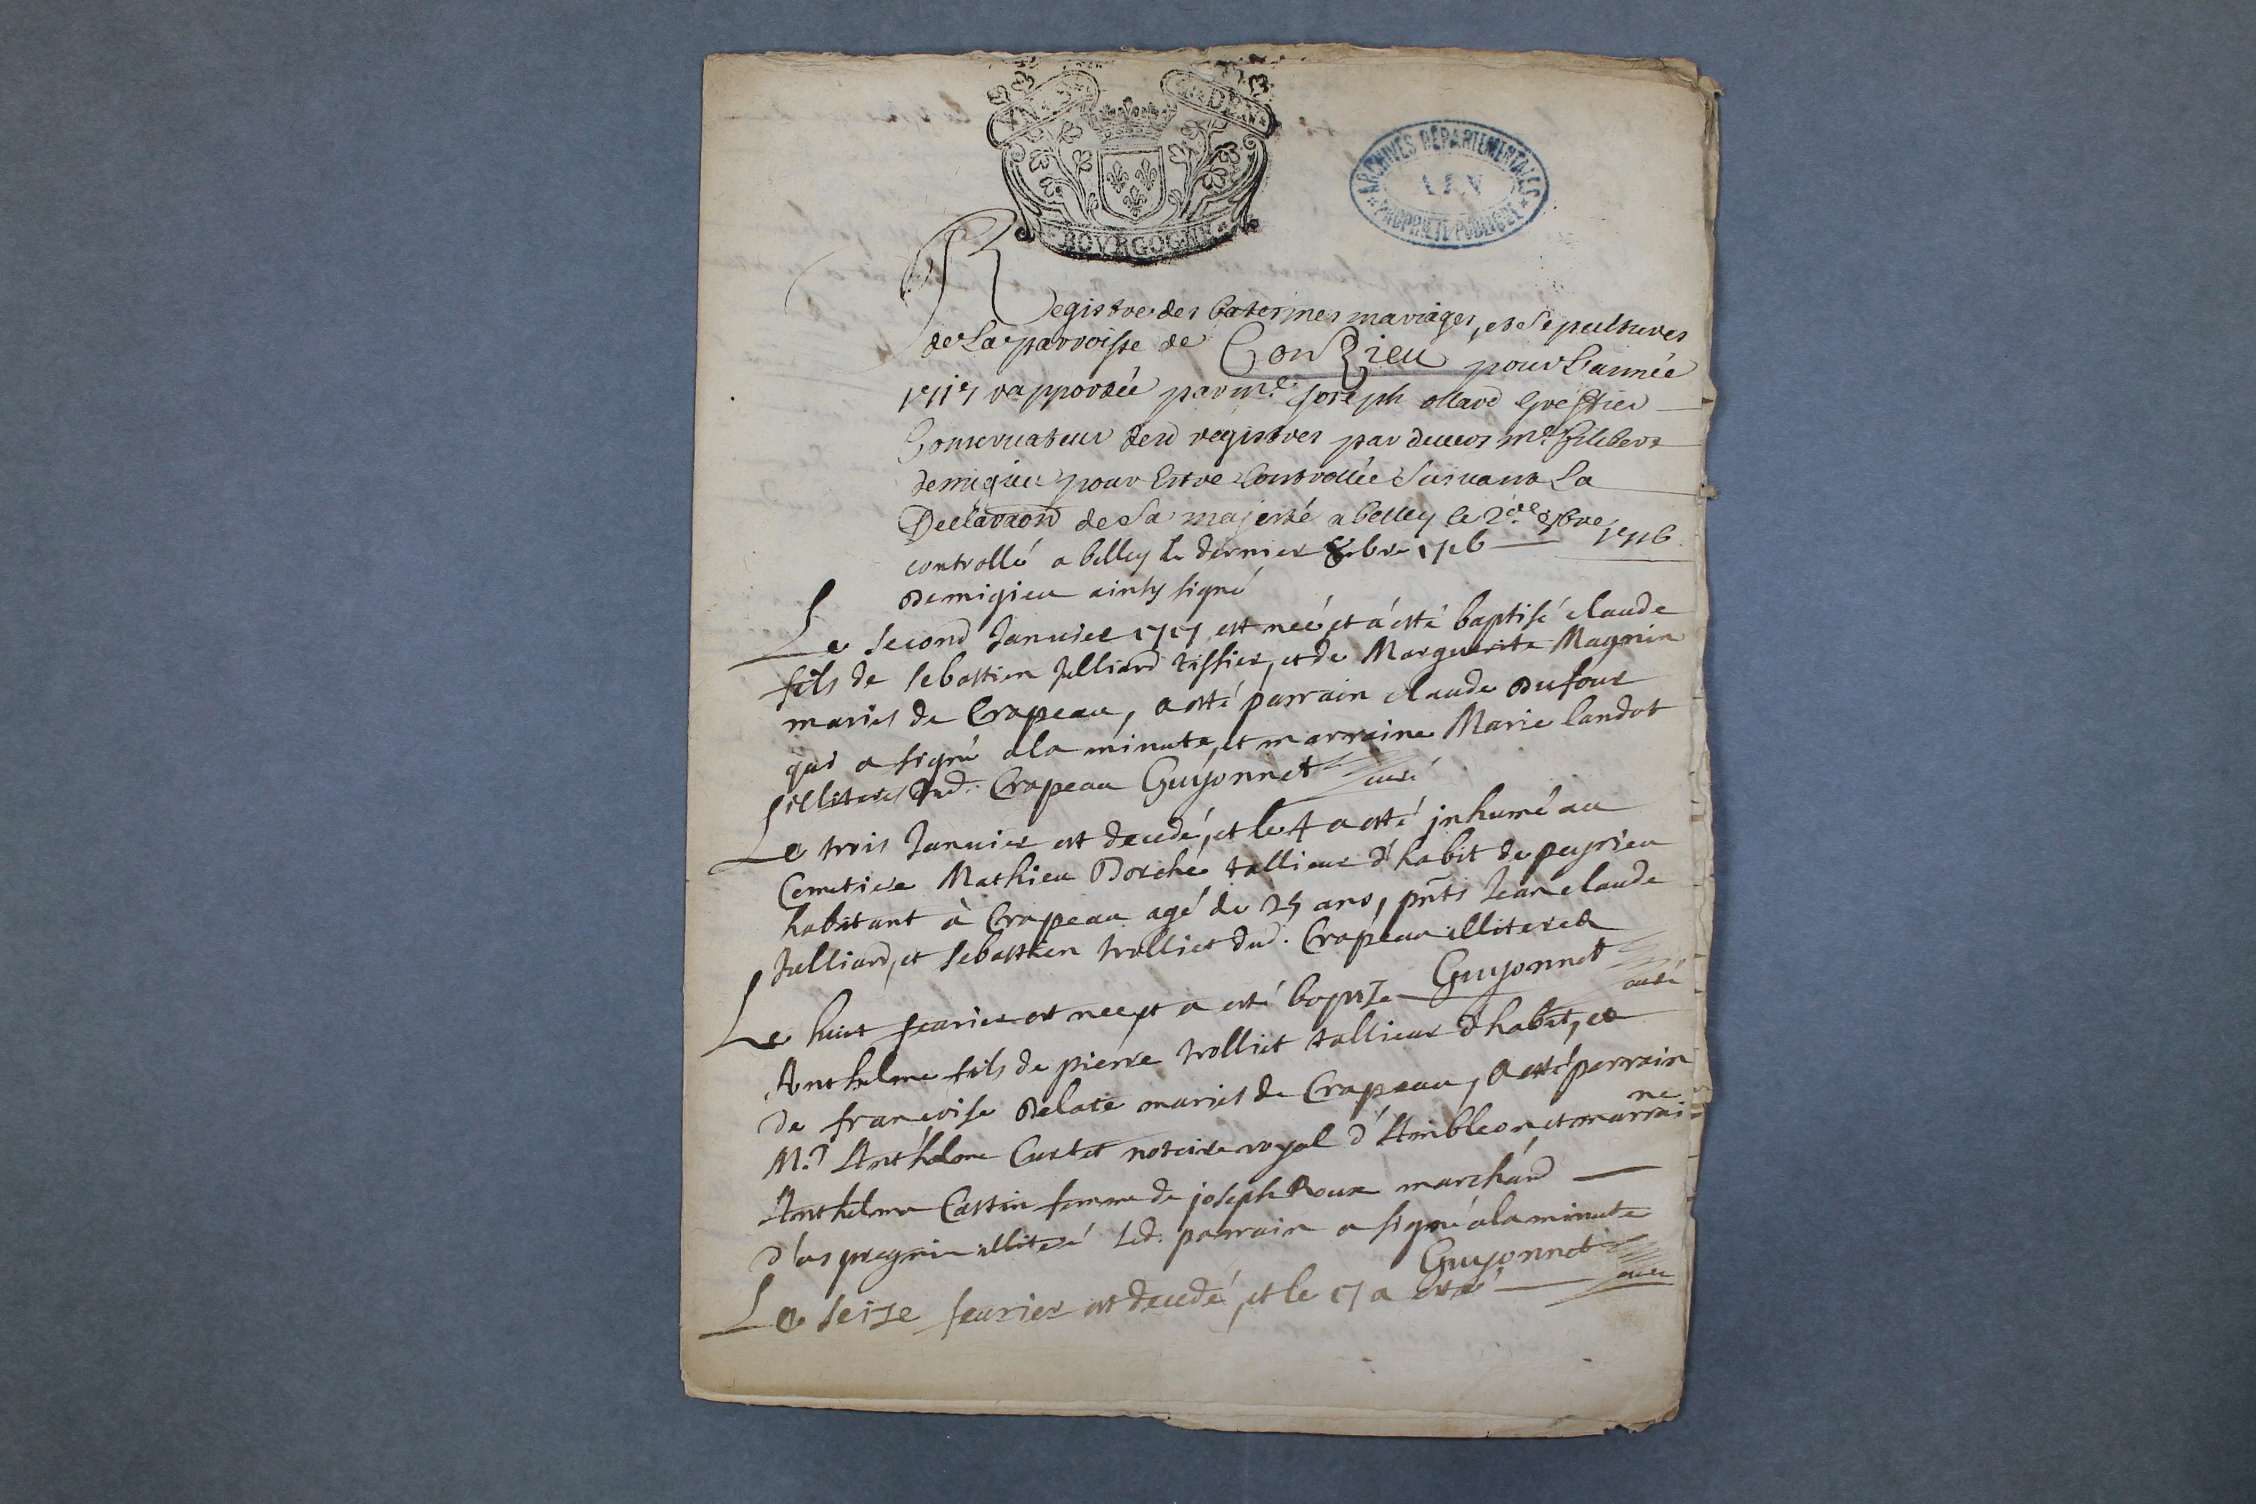 BOVRGOGNE
ARCHIVES DÉPARTEMENTALES
AIN
PROPRIÉTÉ PUBLIQUE
Registre des batesmes mariages, et sepultures
de La parroisse de Conzieu pour L'année
1717 rapportée par me. Joseph ollard greffier
Conservateur desd registres par devers me. filibert
demigieu pour Estre Controllée Suivant La
Declaraon de Sa majesté a belley le 8bre 1716
controllé a belley le dernier 8bre 1716
Demigieu ainsy signé
Le second Januier 1717 est neé, et a esté baptisé claude
fils de sebastien Julliard tissier, et de Marguerite Magnin
mariés de Crapeau, a esté parrain claude Dufour
qui a signé a la minute, et marraine Marie landot
illiteres dud. Crapeau Guyonnet curé
Le trois Januier est decedé, et le 4 a esté inhumé au
Cemetiere Mathieu Borche tallieur d'habit de peyrieu
habitant à Crapeau agé de 25 ans, pnts Jean claude
Julliard, et sebastien trolliet dud. Crapeau illiteres
Guyonnet curé
Le huit feurier est nee, et a esté baptize
Anthelme fils de pierre trolliet tallieur d'habit, et
de francoise Delace mariés de Crapeau, a esté parrain
M.e Anthelme Curtet notaire royal d'Ambleon et marrai
ne
Anthelma Cattin femme de joseph Roux marchand
illiteré led. parrain a signé a la minute
Guyonnet curé
Le seize feurier est decedé, et le 17 a esté